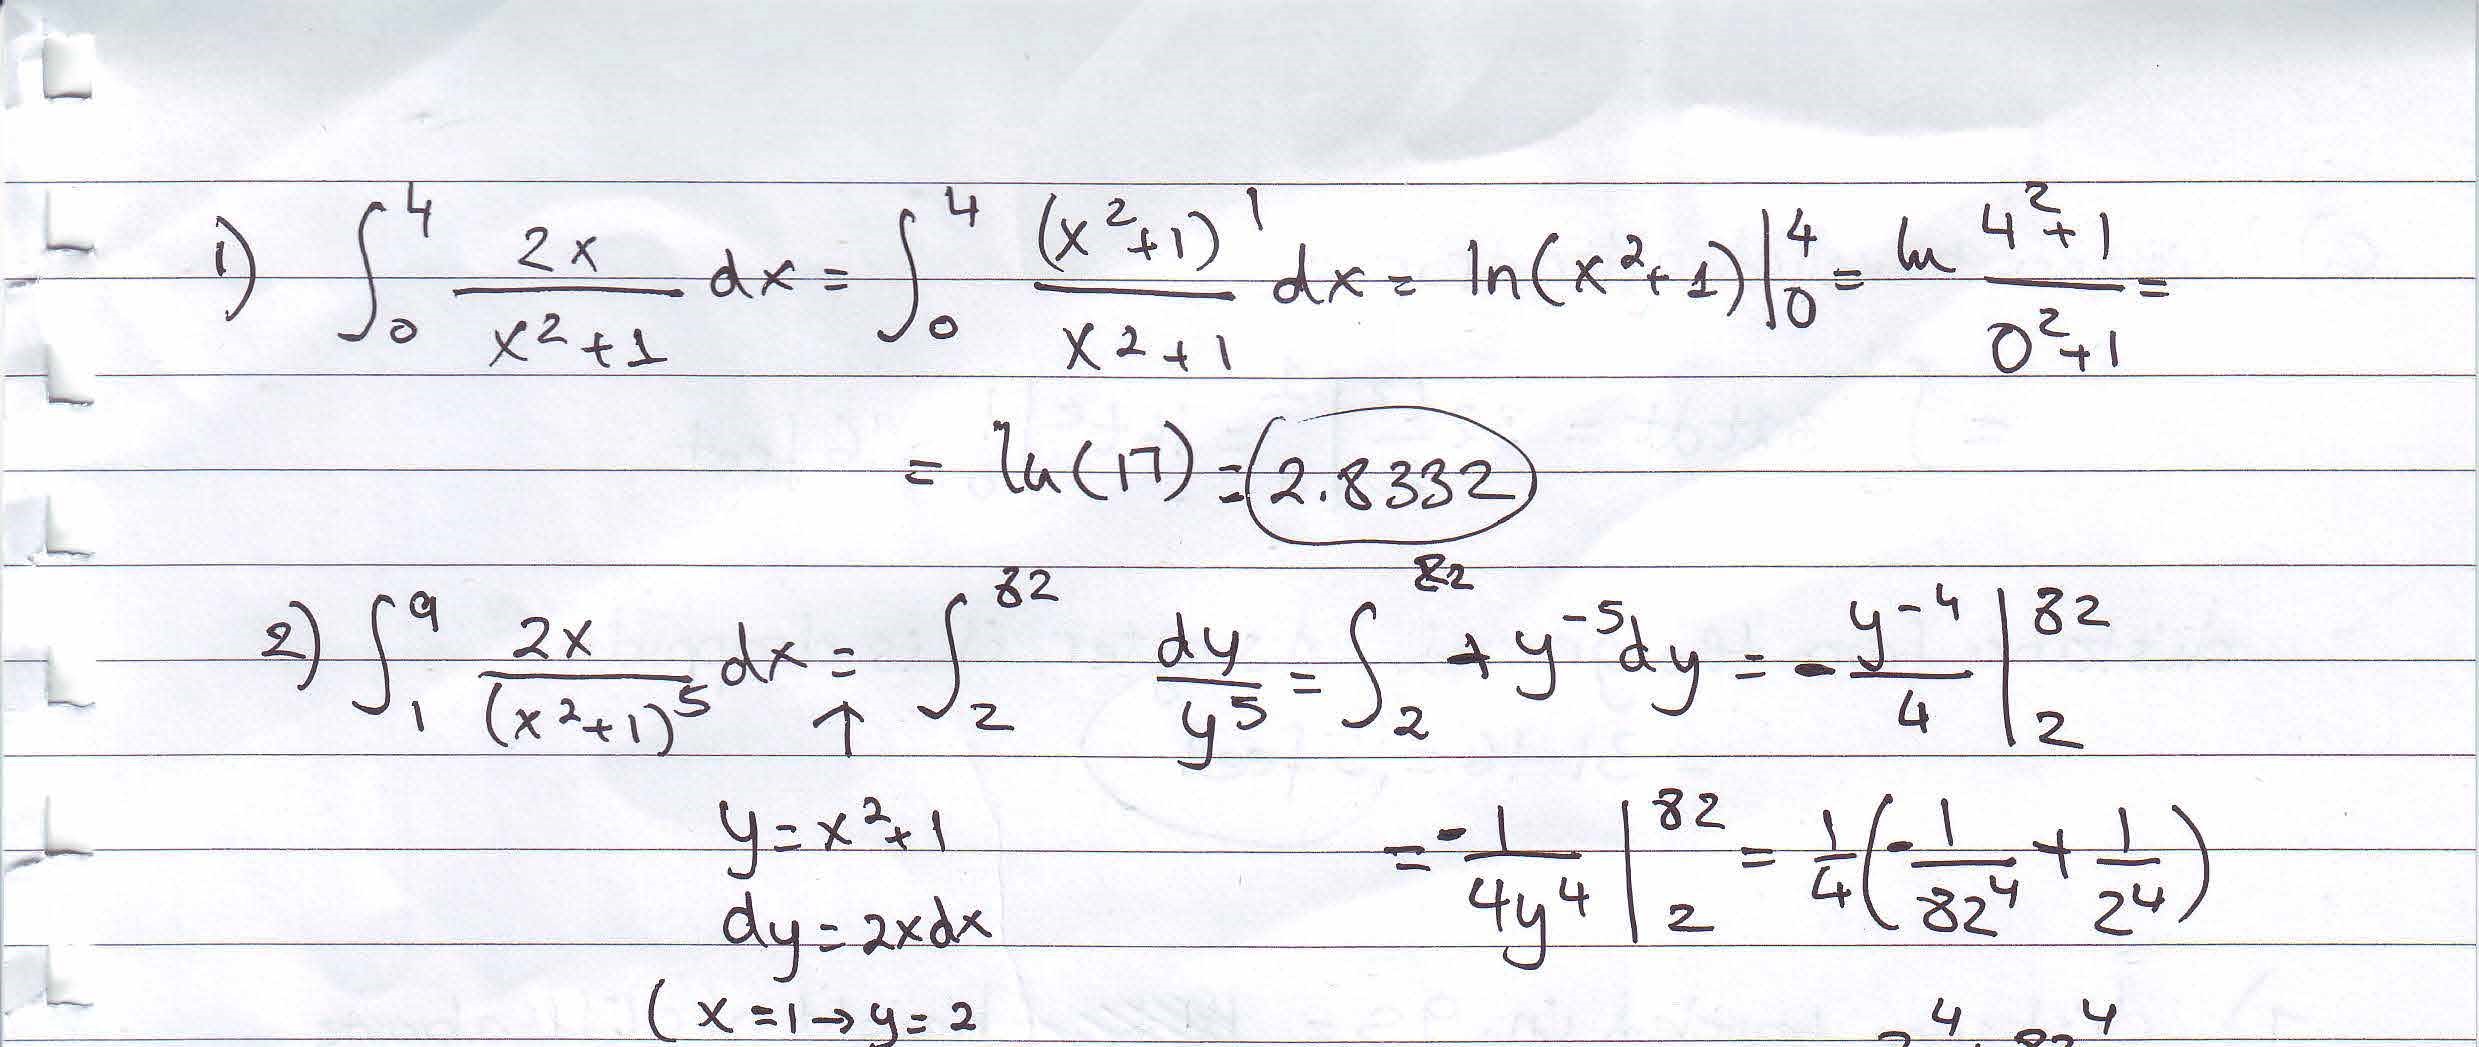 1) ∫₀⁴ 2x/(x²+1) dx = ∫₀⁴ (x²+1)'/(x²+1) dx = ln(x²+1)|₀⁴ = ln (4²+1)/(0²+1) =
= ln(17) = 2.8332
2) ∫₁⁹ 2x/(x²+1)⁵ dx = ∫₂⁸² dy/y⁵ = ∫₂⁸² + y⁻⁵dy = - y⁻⁴/4 |₂⁸²
↑
y = x²+1 = -1/(4y⁴) |₂⁸² = 1/4 (-1/82⁴ + 1/2⁴)
dy = 2xdx
( x = 1 → y = 2